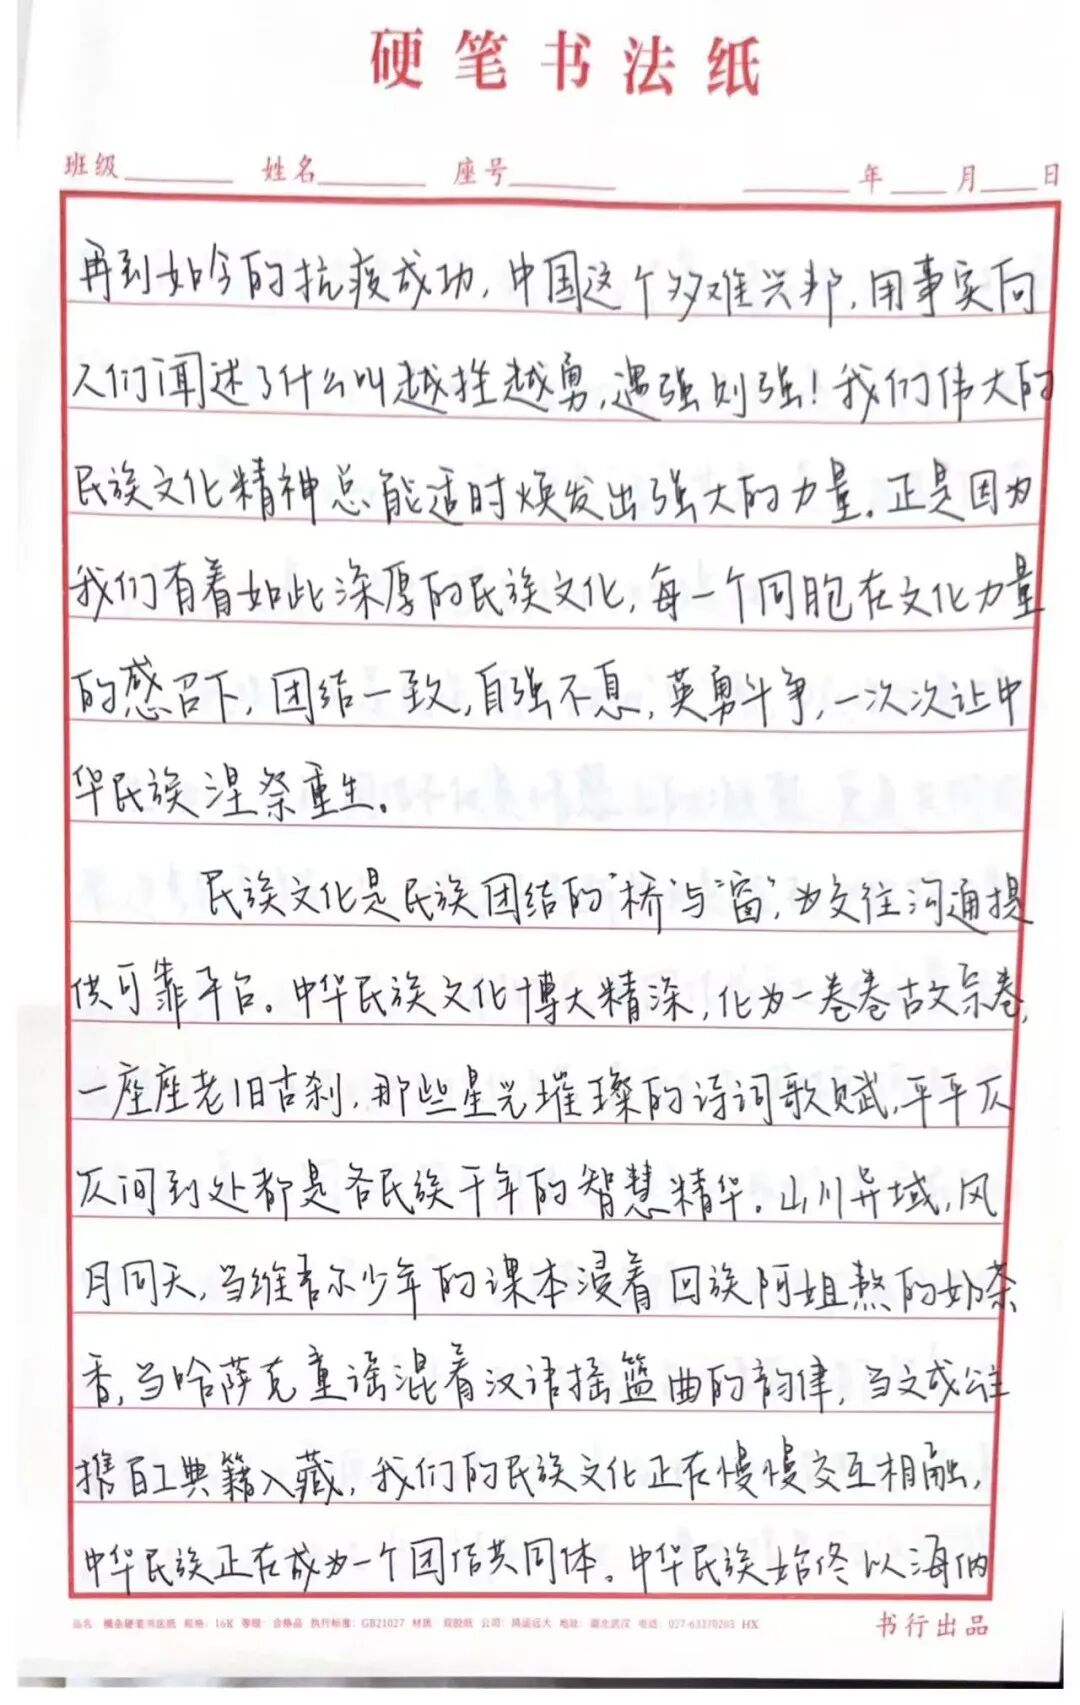 硬笔书法纸
班级 姓名 座号 年 月 日
再到如今的抗疫成功，中国这个多难兴邦，用事实向
人们阐述了什么叫越挫越勇，遇强则强！我们伟大的
民族文化精神总能适时焕发出强大的力量。正是因为
我们有着如此深厚的民族文化，每一个同胞在文化力量
的感召下，团结一致，自强不息，英勇斗争，一次次让中
华民族涅槃重生。
民族文化是民族团结的“桥”与“窗”，为交往沟通提
供可靠平台。中华民族文化博大精深，化为一卷卷古文宗卷，
一座座老旧古刹，那些星光璀璨的诗词歌赋，平平仄
仄间到处都是各民族千年的智慧精华。山川异域，风
月同天，当维吾尔少年的课本浸着回族阿姐熬的奶茶
香，当哈萨克童谣混着汉语摇篮曲的韵律，当文成公主
携百工典籍入藏，我们的民族文化正在慢慢交互相融，
中华民族正在成为一个团结共同体。中华民族始终以海纳
品名 横条硬笔书法纸 规格：16K 等级：合格品 执行标准：GB21027 材质 双胶纸 公司：鸿运远大 地址：湖北武汉 电话：027-63370203 HX
书行出品